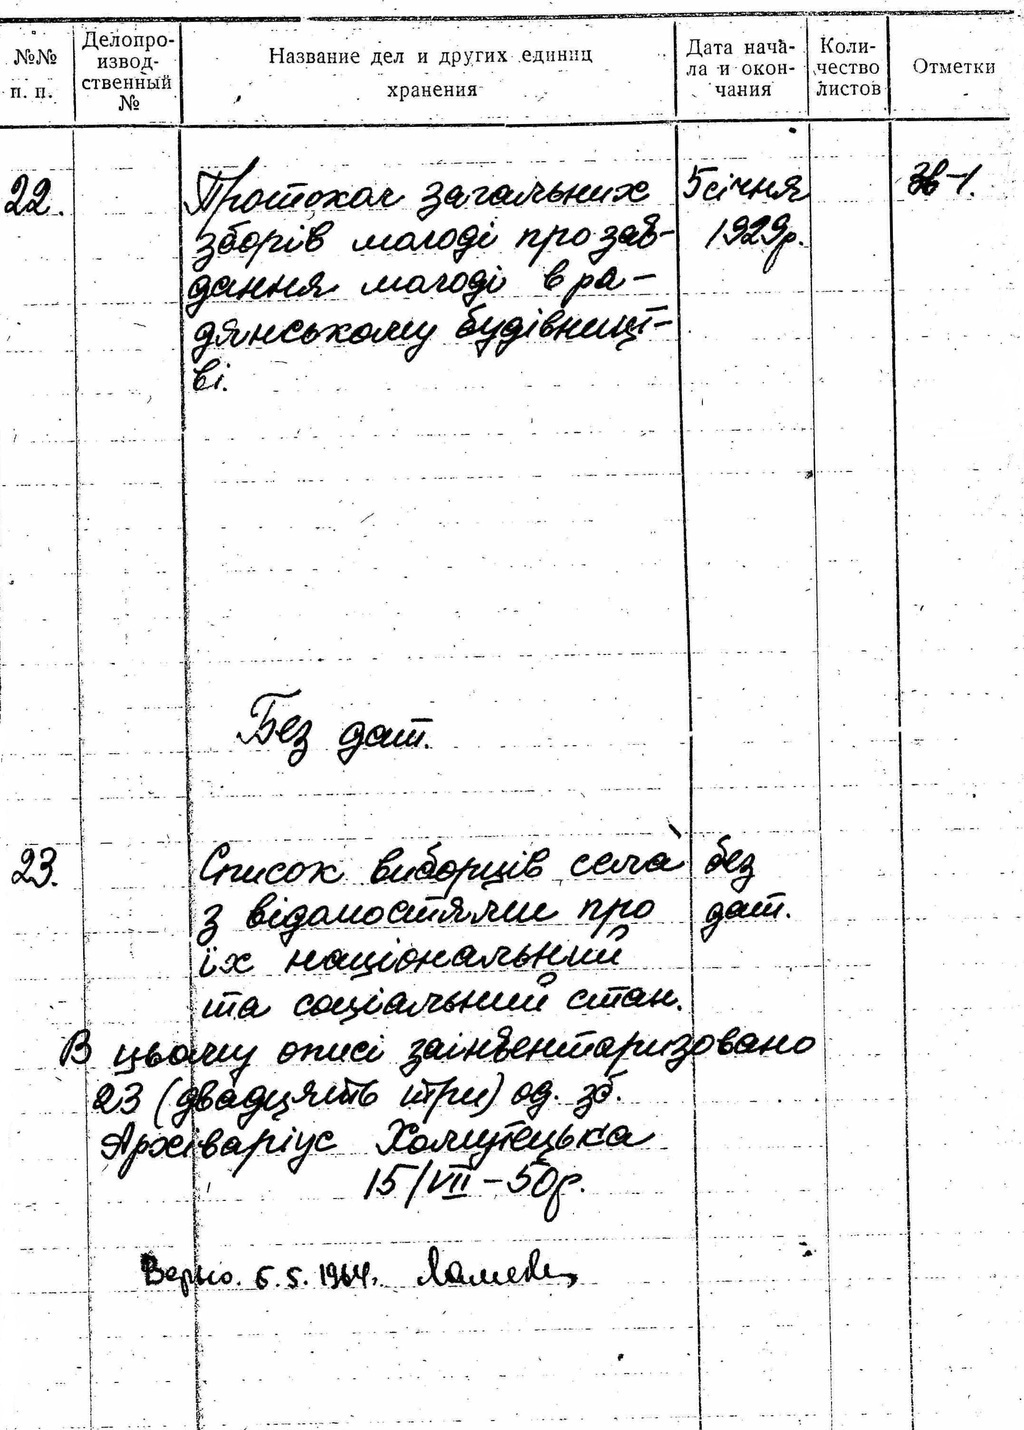 №№ п. п.
Делопро-
извод-
ственный
№
Название дел и других единиц
хранения
Дата нача-
ла и окон-
чания
Коли-
чество
листов
Отметки
22.
Протокол загальних
зборів молоді про зав-
дання молоді в ра-
дянському будівницт-
ві.
5 січня
1929р.
Без дат.
23.
Список виборців села
з відомостями про
їх національний
та соціальний стан.
без
дат.
В цьому описі заінвентаризовано
23 (двадцять три) од. зб.
Архіваріус Хомутецька
15/VII – 50р.
Верно. 6.5.1964.